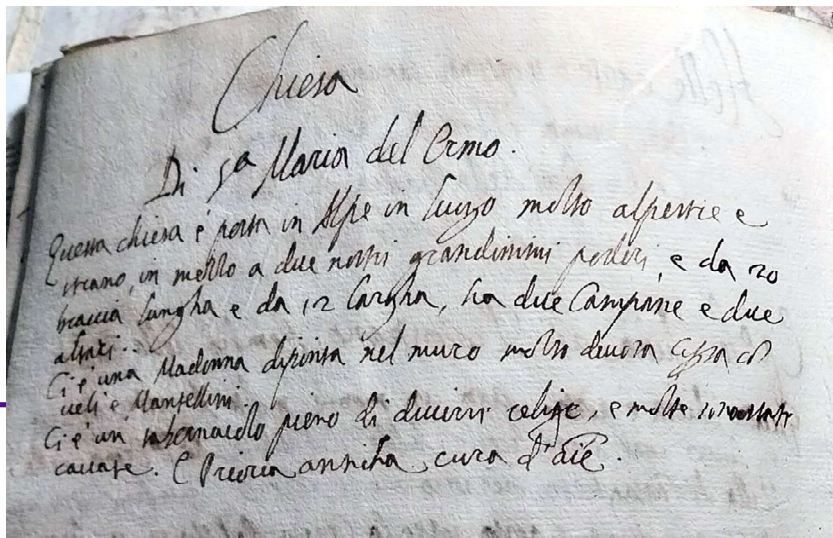 Chiesa
Di Sa Maria del Ermo.
Questa chiesa è posta in Alpe in luogo molto alpestre e
strano, in mezzo a due nostri grandissimi poderi, e da 20
braccia lungha e da 12 largha, ha due Campane e due
altari.
Ci è una Madonna dipinta nel muro molto devota
veli e Mantellini.
Ci è un tabernacolo pieno di diverse relige, e molte
cavate. E Prioria annessa cura d'aie.